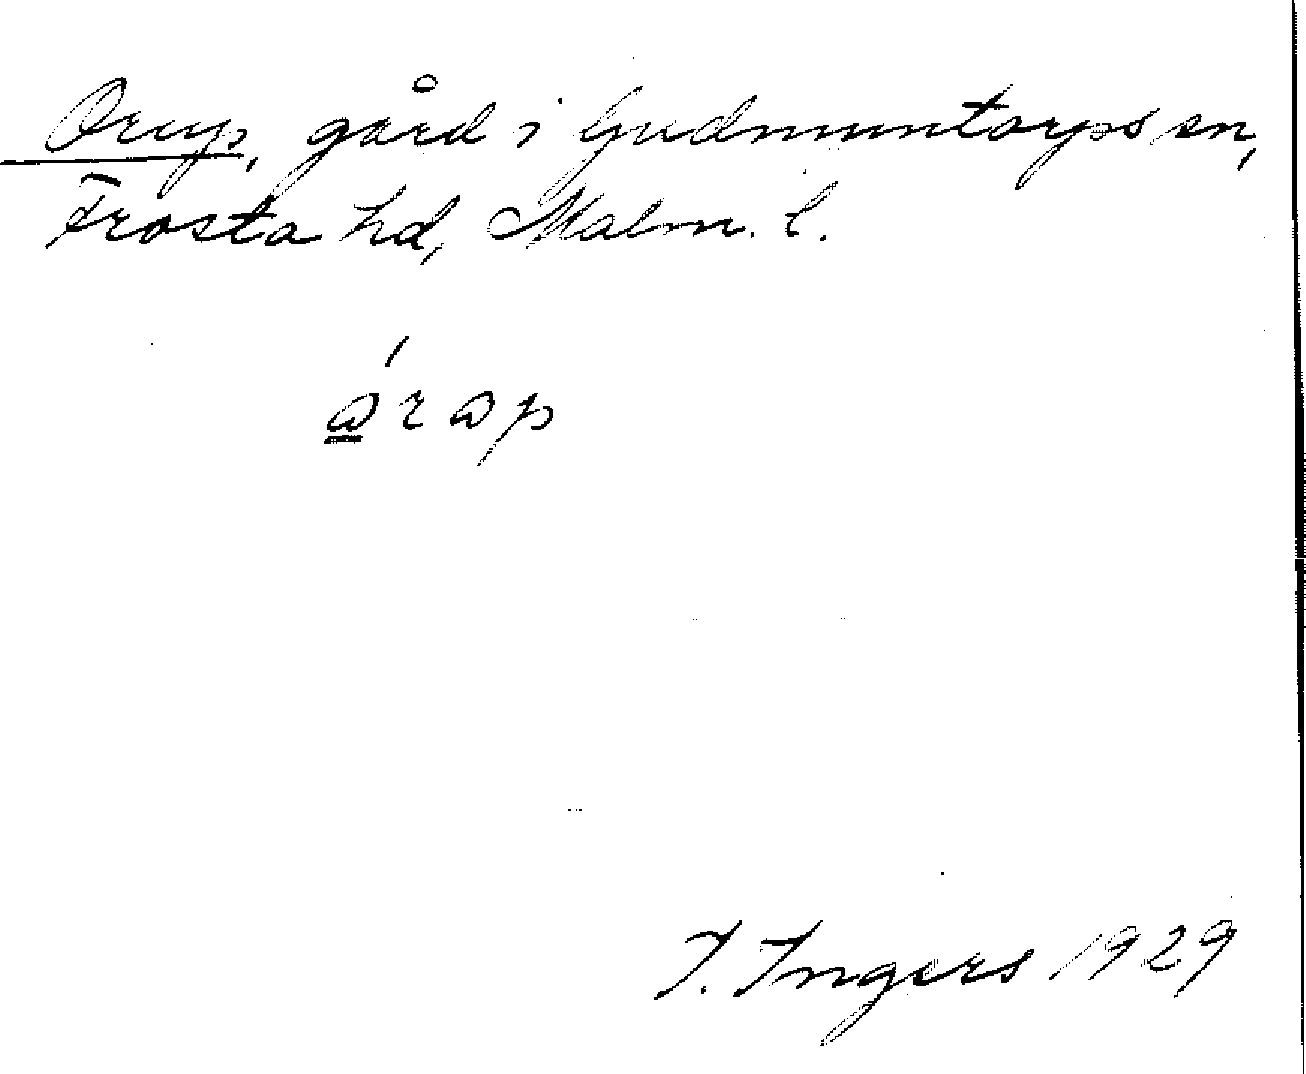 Orup, gård i Gudmuntorps sn,
Frosta hd, Malm. l.
I. Ingers 1929